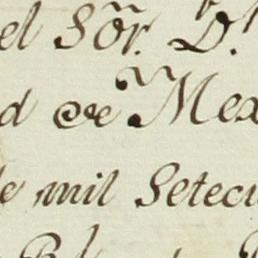 el Sõr. D.
d de Mex
de mil Seteci